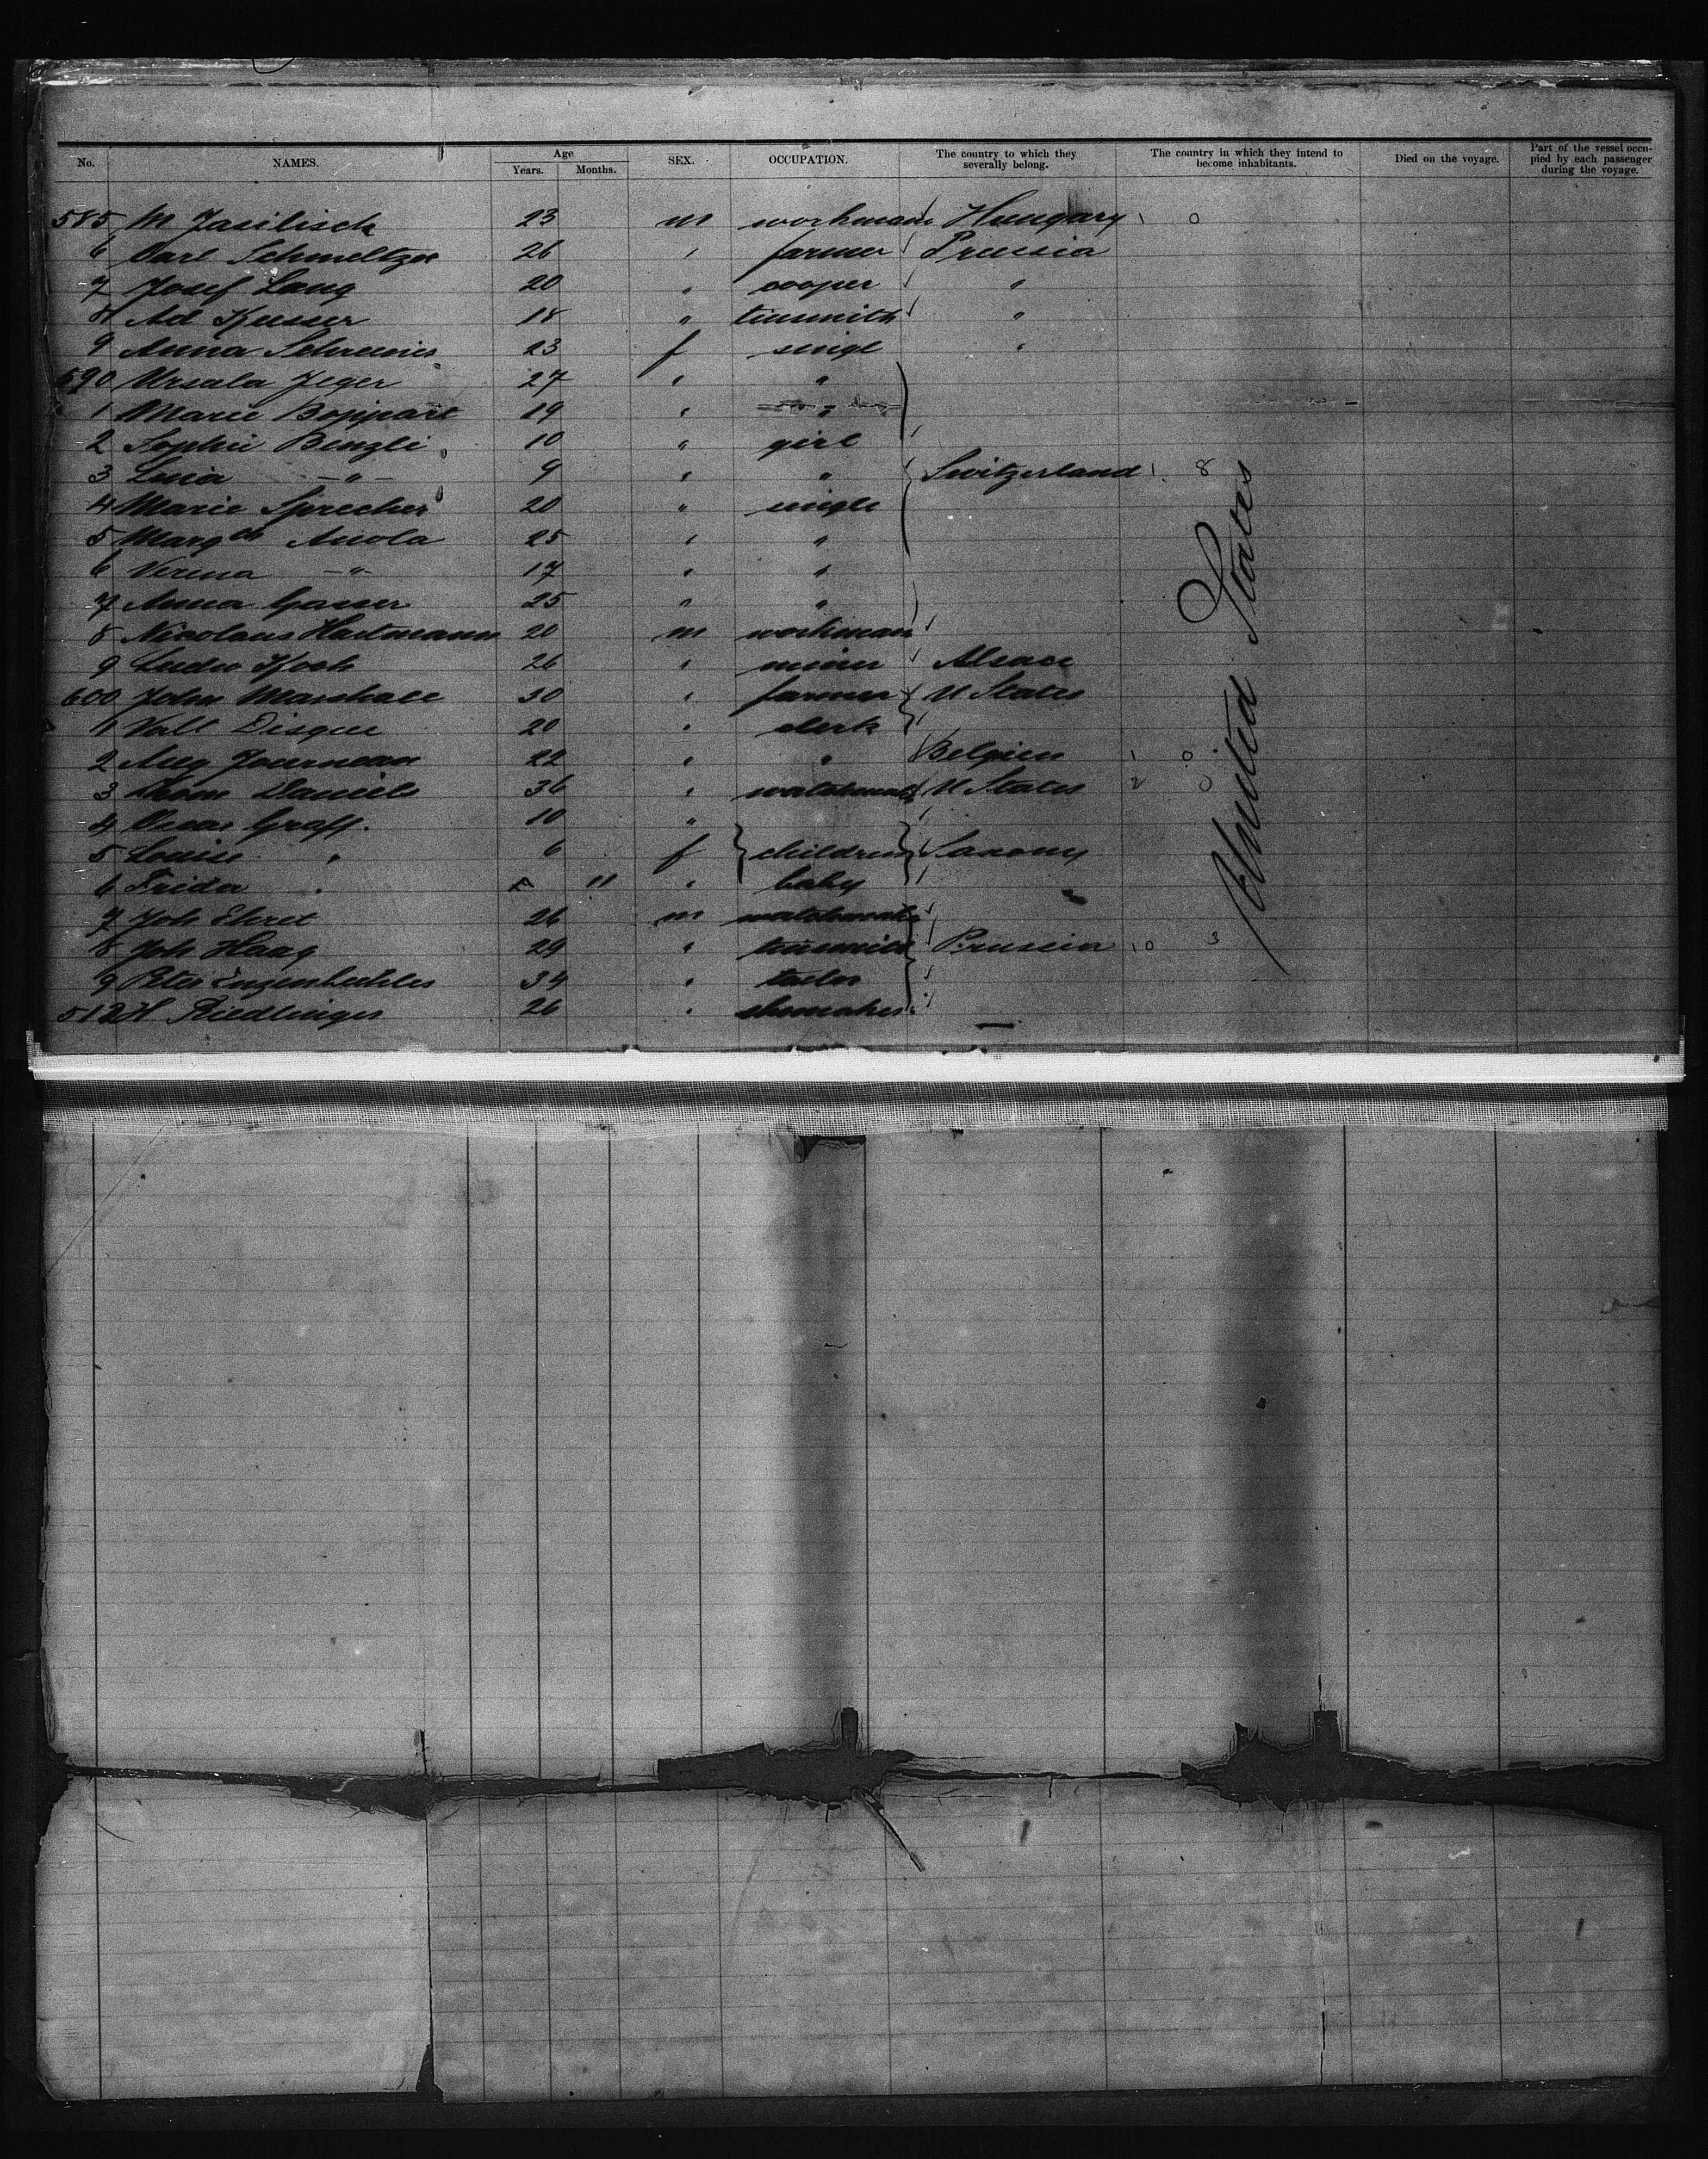 No. NAMES. Age Years. Months. SEX. OCCUPATION. The country to which they severally belong. The country in which they intend to become inhabitants. Died on the voyage. Part of the vessel occupied by each passenger during the voyage.
585 M Jasilisch 23 m workman Hungary 1 0
6 Carl Schmeltzer 26 " farmer Prussia
7 Josef Lang 20 " cooper "
8 Ad Kusser 18 " tinsmith "
9 Anna 23 f singl "
590 Ursala Jeger 27 " "
1 Marie Boppart 19 " "
2 Sophie Binzli 10 " girl
3 Lina -"- 9 " " Switzerland 1 8
4 Marie Sprecher 20 " single
5 Margth 25 " "
6 Verena -"- 17 " "
7 Anna Gasser 25 " "
8 Nicolaus Hartmann 20 m workman
9 Ludw Koch 26 " miner Alsace
600 John Marshall 30 " farmer U States
1 Valt Disque 20 " clerk
2 Aug 22 " " Belgien 1 0
3 Daniels 36 " watchmak U States 2 0
4 Oscar Graff. 10 "
5 Louise " 6 f children Saxony
6 Frida " 11 " baby
7 Joh Ehret 26 m watchmak
8 Joh Haag 29 " tinsmith Prussia 10 3
9 Peter 34 " tailor
512 H Riedlinger 26 " shomaker
United States